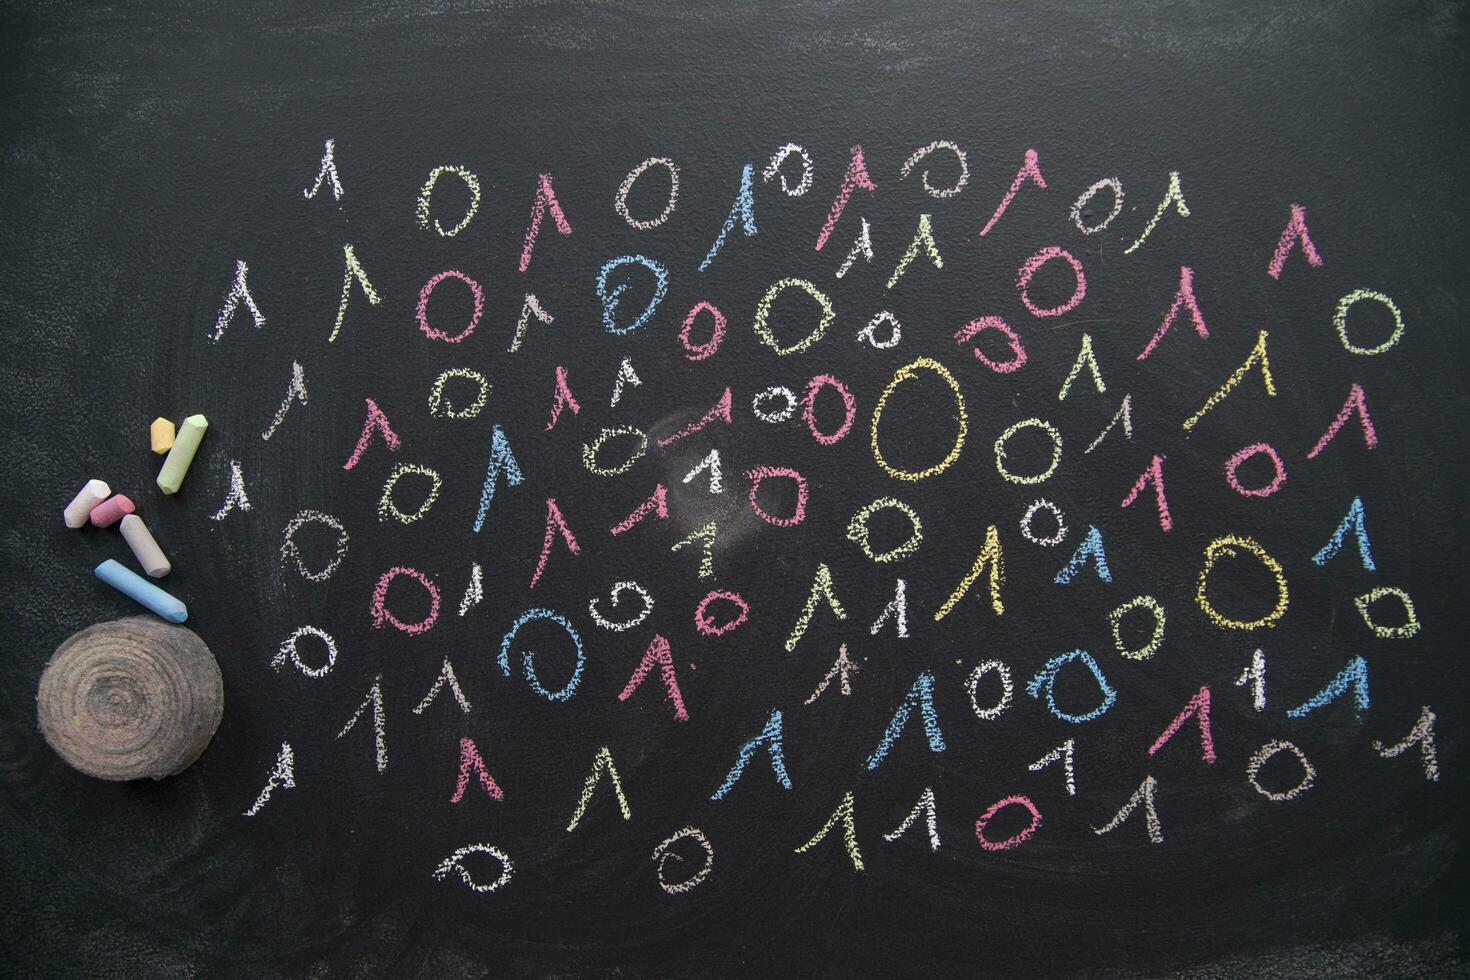 1 0 1 0 1 0 1 0 1 0 1 1
1 1 0 1 0 0 0 1 0 1 0 0 1 0
1 1 0 1 1 1 0 0 0 0 1 1 1 1
1 0 1 0 1 1 0 0 0 1 0 1
0 0 1 1 0 1 0 1 1 1 1 0 0 0
0 1 1 0 1 1 1 0 0 1 1 1
1 1 1 1 1 1 0 1 1 0 1
0 0